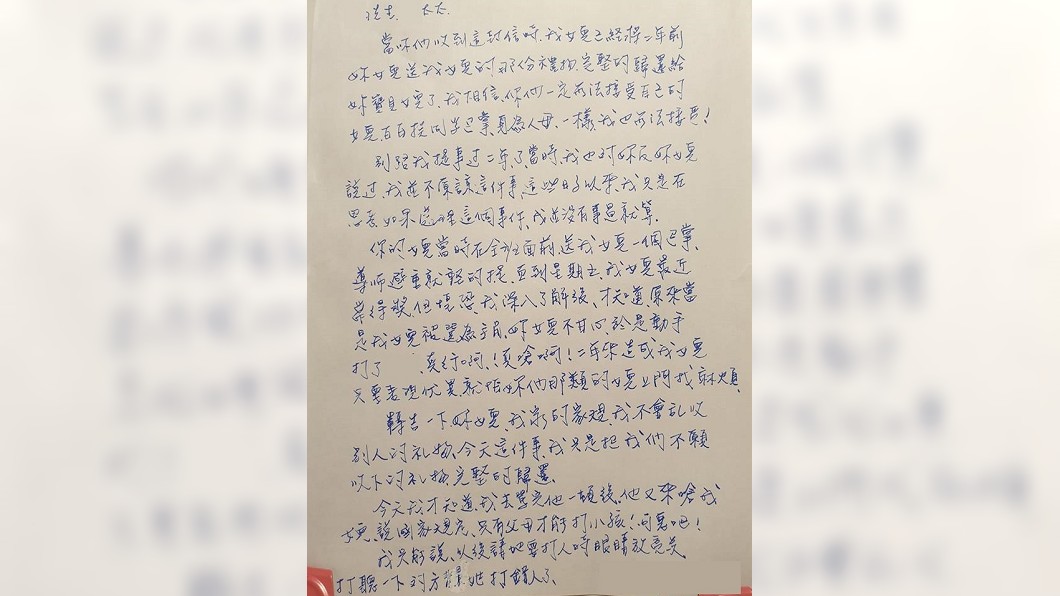 先生. 太太.
當妳們收到這封信時,我女兒已經將二年前
妳女兒送我女兒的那份禮物,完整的歸還給
妳寶貝女兒了,我相信,你們一定無法接受自己的
女兒百白挨同學巴掌,身為人母,一樣,我也無法接受!
別跟我提事過二年了,當時,我也對妳及妳女兒
說過,我並不原諒這件事,這些日子以來,我只是在
思考如果處理這個事件,我並沒有事過就算.
你的女兒當時在全班面前,送我女兒一個巴掌,
導師避重就輕的提,直到星期三,我女兒最近
常得獎但壞恐,我深入了解後,才知道原來當
是我女兒被選為主角,妳女兒不甘心,於是動手
打了 真行啊!真嗆啊!二年來造成我女兒
只要表現優異就怕妳們那類的女兒上門找麻煩
轉告一下妳女兒,我家的家規,我不會亂收
別人的礼物,今天這件事,我只是把我們不願
收下的礼物完整的歸還.
今天我才知道,我去罵完他一頓後,他又來嗆我
女兒,說國家規定,只有父母才能打小孩!可惡吧!
我只能說,以後請她要打人時眼睛放亮点,
打聽一下對方背景,她打錯人了.